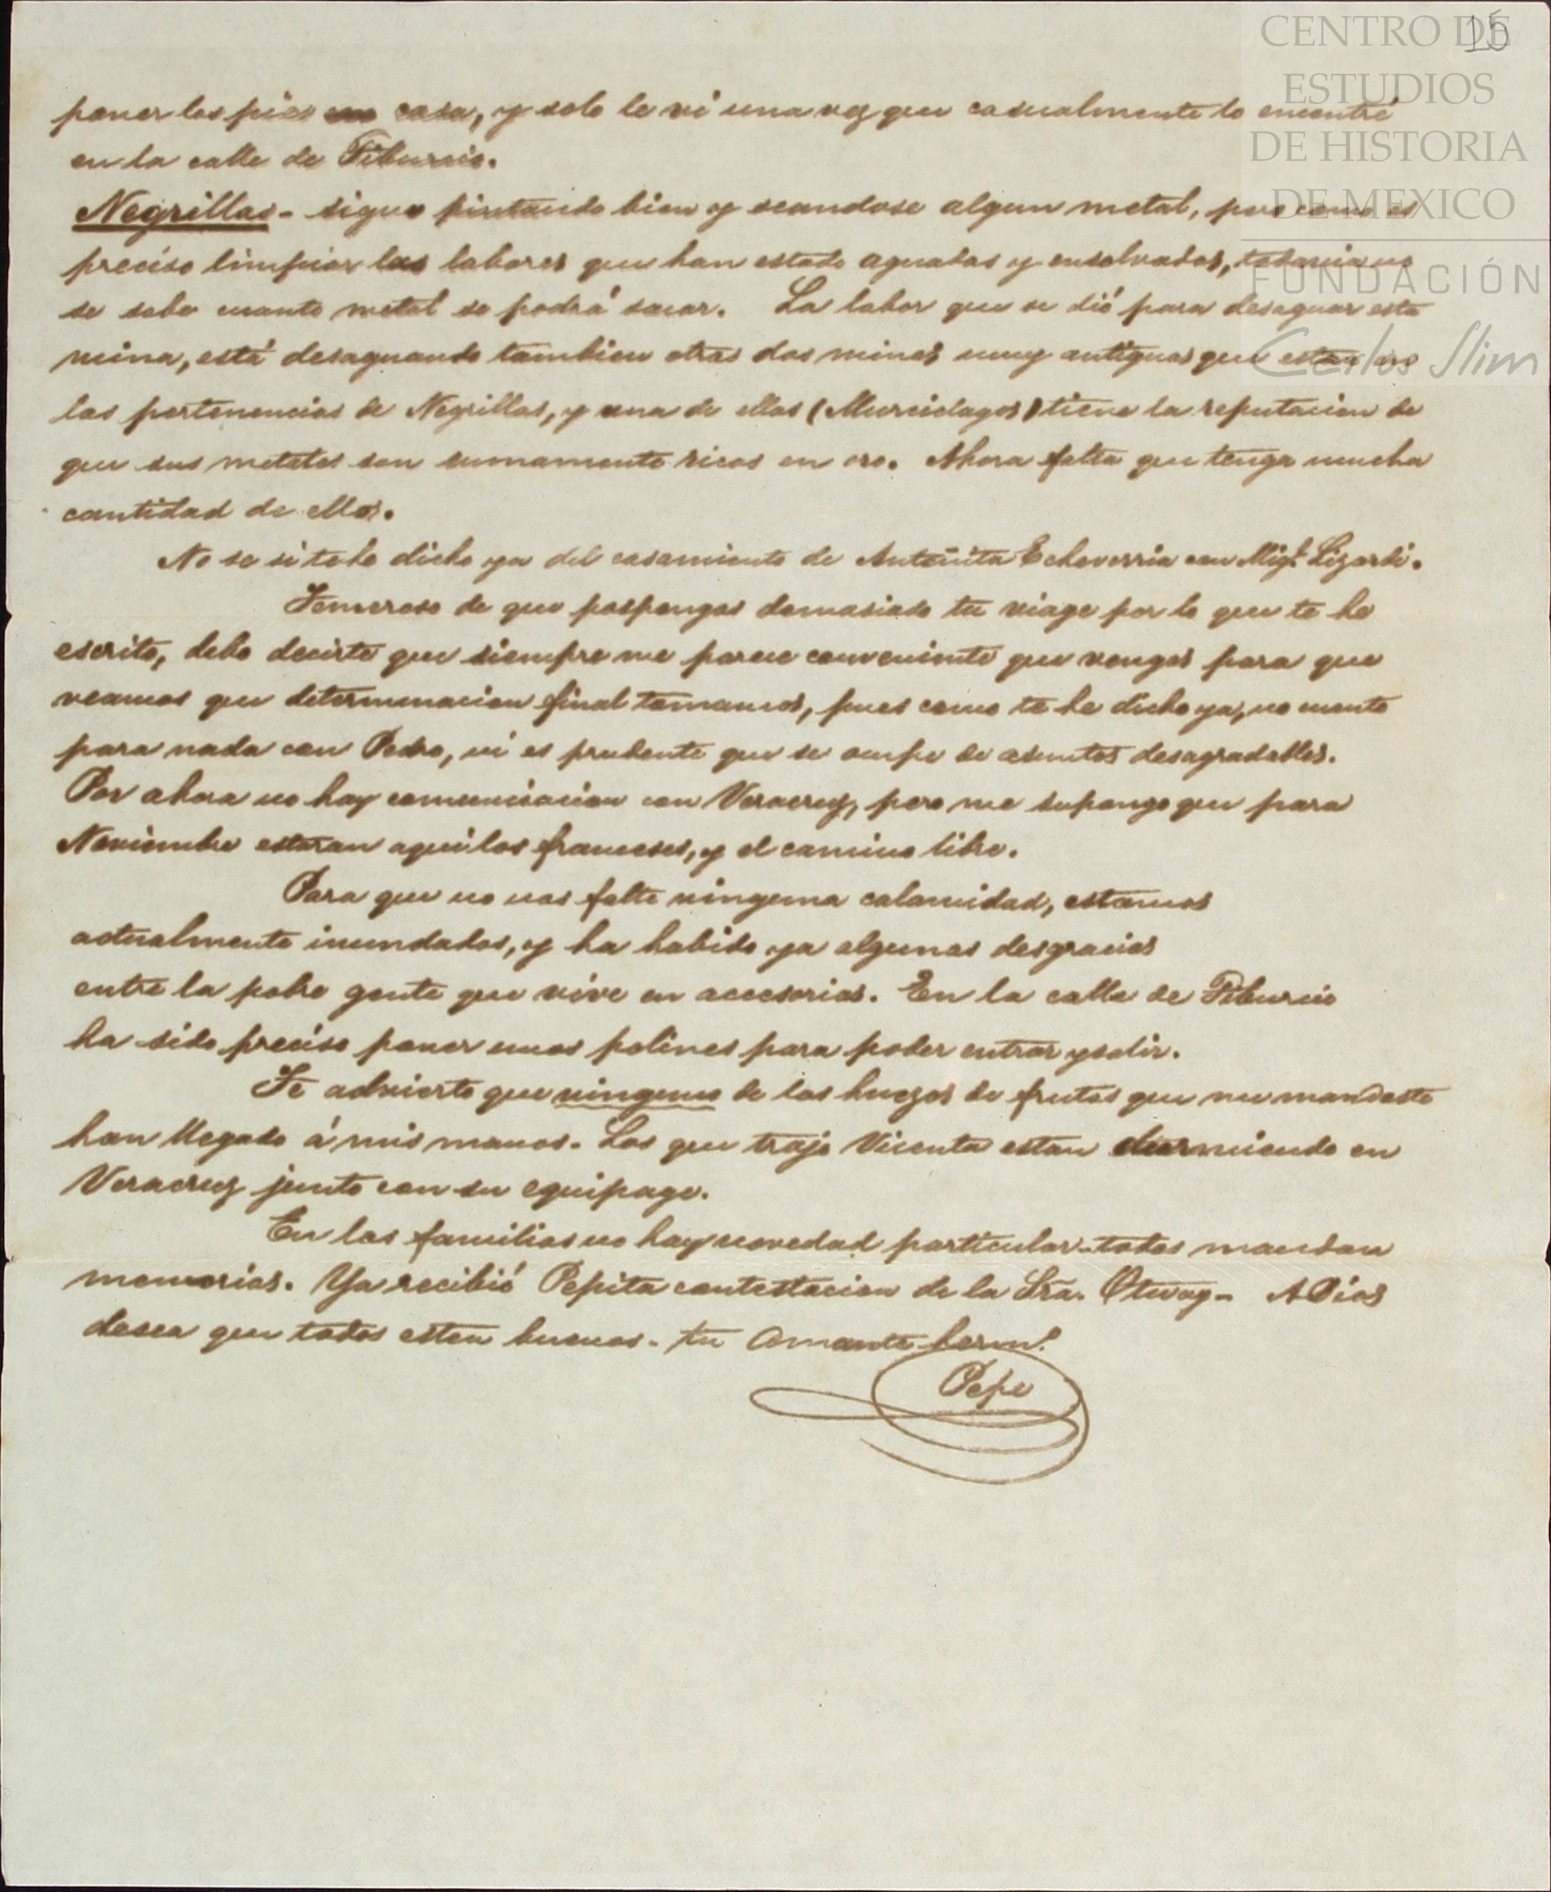 15
CENTRO DE
ESTUDIOS
DE HISTORIA
DE MEXICO
FUNDACIÓN
Carlos Slim
poner los pies en casa, y solo le vi una vez que casualmente lo encontré
en la calle de Tiburcio.
Negrillas - sigue pintando bien y sacandose algun metal, pero como es
preciso limpiar las labores que han estado aguadas y ensolvadas, todavia no
se sabe cuanto metal se podrá sacar. La labor que se dió para desaguar esta
mina, está desaguando tambien otras dos minas muy antiguas que estan en
las pertenencias de Negrillas, y una de ellas (Murcielagos) tiene la reputacion de
que sus metales son sumamente ricos en oro. Ahora falta que tenga mucha
cantidad de ellos.
No se si te he dicho ya del casamiento de Antoñita Echeverria con Migl. Lizardi.
Temeroso de que pospongas demasiado tu viage por lo que te he
escrito, debo decirte que siempre me parece conveniente que vengas para que
veamos que determinacion final tomamos, pues como te he dicho ya, no cuento
para nada con Pedro, ni es prudente que se ocupe de asuntos desagradables.
Por ahora no hay comunicacion con Veracruz, pero me supongo que para
Noviembre estaran aqui los franceses, y el camino libre.
Para que no nos falte ninguna calamidad, estamos
actualmente inundados, y ha habido ya algunas desgracias
entre la pobre gente que vive en accesorias. En la calle de Tiburcio
ha sido preciso poner unos polines para poder entrar y salir.
Te advierto que ninguno de los huezos de frutas que me mandaste
han llegado á mis manos. Los que trajo Vicenta estan durmiendo en
Veracruz junto con su equipage.
En las familias no hay novedad particular - todos mandan
memorias. Ya recibió Pepita contestacion de la Sra. Otway - A Dios
desea que todos esten buenos - tu amante hermo.
Pepe